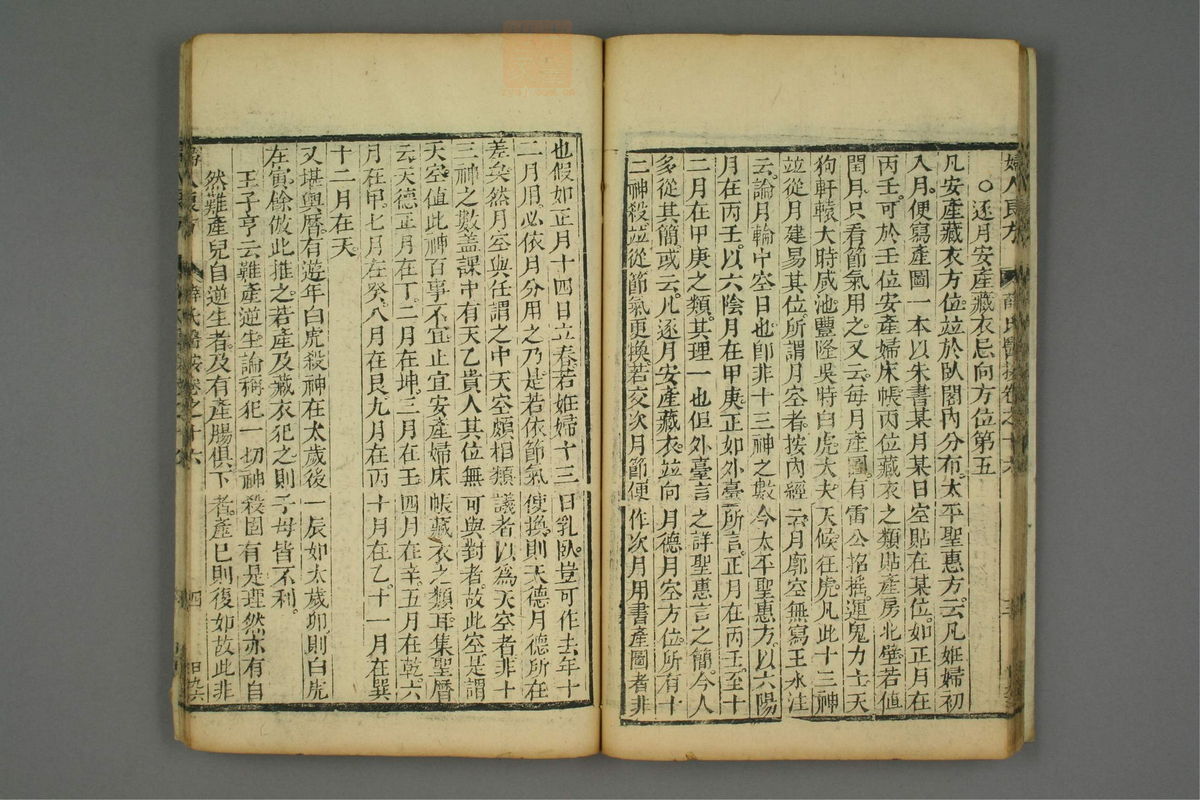 婦人良方 薛氏醫按卷之十六 三
○逐月安產藏衣忌向方位第五
凡安產藏衣方位並於臥閣內分布太平聖惠方云凡姙婦初
入月便寫產圖一本以朱書某月某日空貼在某位如正月在
丙壬可於壬位安產婦床帳丙位藏衣之類貼產房北壁若值
閏月只看節氣用之又云每月產圖有雷公招搖運鬼力士天
狗軒轅大時咸池豐隆吳時白虎大夫天候狂虎凡此十三神
並從月建易其位所謂月空者按內經云月廓空無寫王水注
云論月輪中空日也即非十三神之數今太平聖惠方以六陽
月在丙壬以六陰月在甲庚正如外臺所言正月在丙壬至十
二月在甲庚之類其理一也但外臺言之詳聖惠言之簡今人
多從其簡或云凡逐月安產藏衣並向月德月空方位所有十
二神殺並從節氣更換若交次月節便作次月用書產圖者非
也假如正月十四日立春若姙婦十三日乳臥豈可作去年十
二月用必依月分用之乃是若依節氣使換則天德月德所在
差矣然月空與任謂之中天空頗相類議者以為天空者非十
三神之數蓋課中有天乙貴人其位無可與對者故此空是謂
天空值此神百事不宜止宜安產婦床帳藏衣之類耳集聖曆
云天德正月在丁二月在坤三月在壬四月在辛五月在乾六
月在甲七月在癸八月在艮九月在丙十月在乙十一月在巽
十二月在天
又堪輿曆有遊年白虎殺神在太歲後一辰如太歲卯則白虎
在寅餘倣此推之若產及藏衣犯之則子母皆不利
王子亨云難產逆生論稱犯一切神殺固有是理然亦有自
然難產兒自逆生者及有產腸俱下者產已則復如故此非